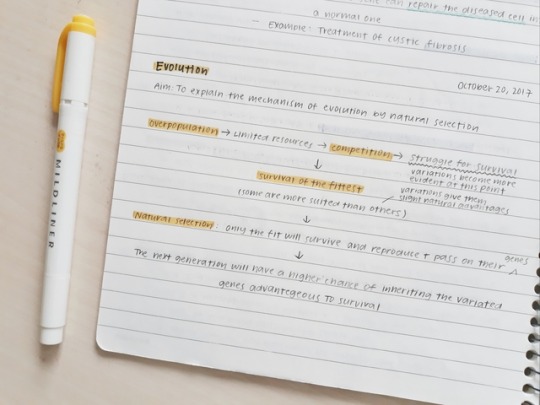 can repair the diseased cell in
a normal one
- Example: Treatment of cystic fibrosis
Evolution
October 20, 2017
Aim: To explain the mechanism of evolution by natural selection
overpopulation → limited resources → competition → struggle for survival
variations become more
evident at this point
↓
survival of the fittest
variations give them
slight natural advantages
(some are more suited than others)
↓
Natural selection: only the fit will survive and reproduce + pass on their genes
↓
The next generation will have a higher chance of inheriting the variated
genes advantegeous to survival
MILDLINER